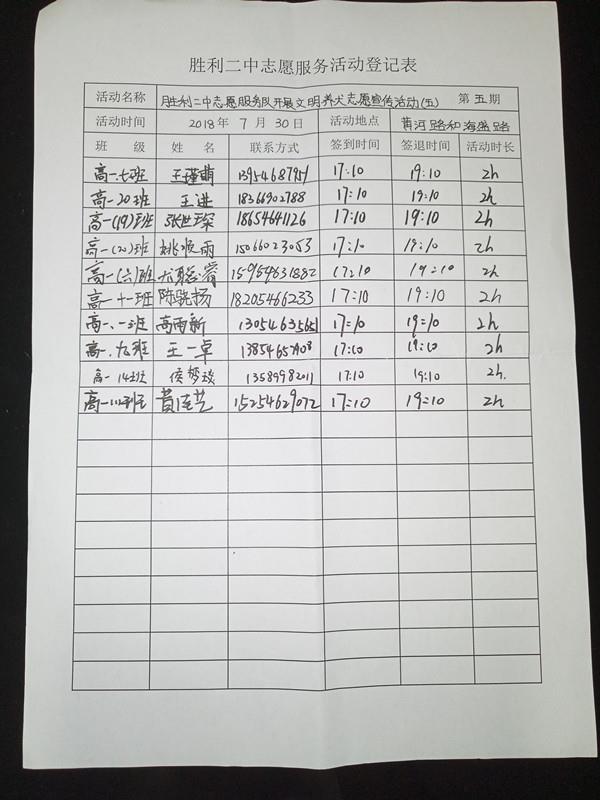 胜利二中志愿服务活动登记表
活动名称 胜利二中志愿服务队开展文明养犬志愿宣传活动(五) 第五期
活动时间 2018年 7 月 30日 活动地点 黄河路和海盛路
班 级 姓 名 联系方式 签到时间 签退时间 活动时长
高一七班 王瑾萌 13954687951 17:10 19:10 2h
高一20班 王进 18366902788 17:10 19:10 2h
高一(19)班 张世琛 18654641126 17:10 19:10 2h
高一(20)班 姚顺雨 15066023053 17:10 19:10 2h
高一(六)班 尤聪睿 15954631882 17:10 19:10 2h
高一十一班 陈骁扬 18205466233 17:10 19:10 2h
高一、一班 高雨新 13054635651 17:10 19:10 2h
高一、九班 王一卓 13854657908 17:10 19:10 2h
高一 14班 侯梦 13589982011 17:10 19:10 2h.
高一 班 黄佳艺 15254629072 17:10 19:10 2h